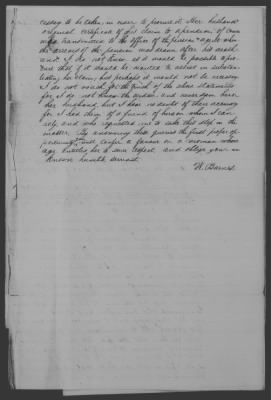 cessary to be taken, in order to procure it. Her husbands
original certificate of his claim to a pension of course
was transmitted to the office of the pension agent when
the arrears of the pension was drawn after his death
and I do not know as it would be possible to pro-
cure that if it should be wanted to assist in substan-
tiating her claim, but perhaps it would not be necessary.
I do not vouch for the truth of the above statements
for I do not know the widow and never saw her or
her husband, but I have no doubt of their accuracy
for I had them of a friend of hers on whom I can
rely and who requested me to take this step in the
matter. By answering these queries the first proper op-
portunity will confer a favour on a woman whose
age entitles her to some respect, and oblige your un-
known humble servant
W. Barnes